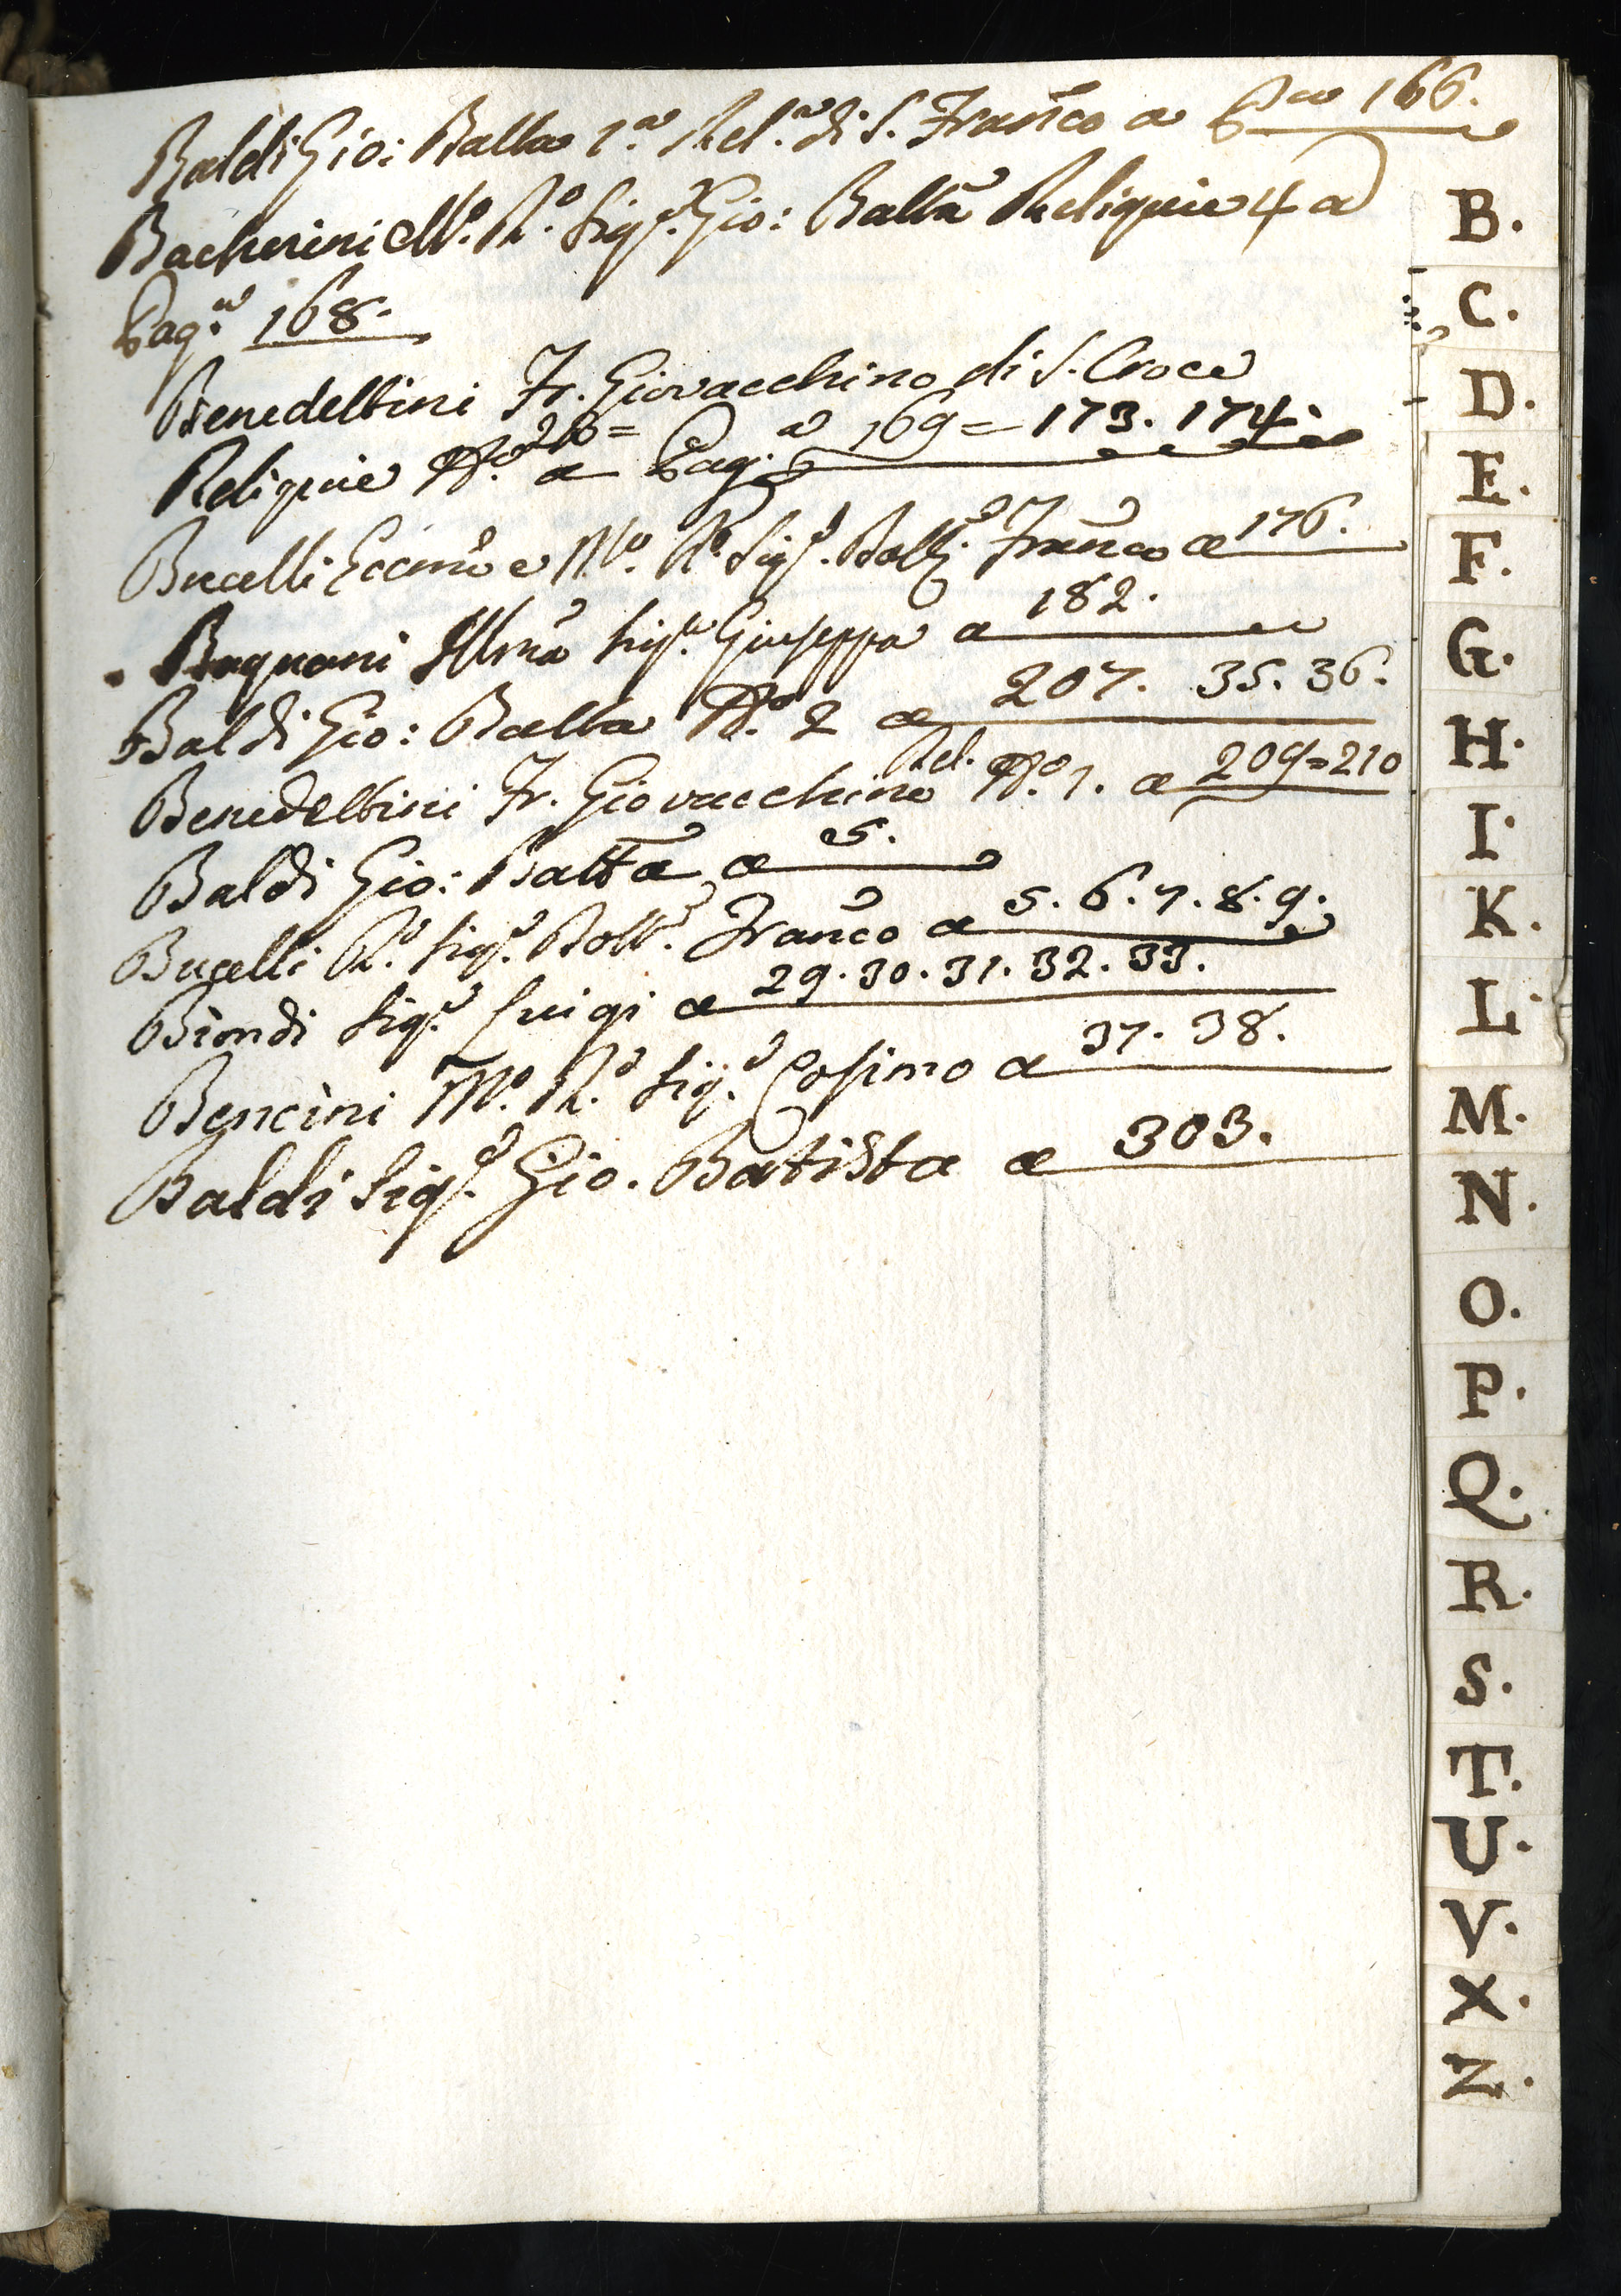 Baldi Gio: Batta 1.ª Rel.ª di S. Franco a 166.
Bacherini M.º R.º Sig.r Gio: Batta Reliquie 4 a
Pag.ª 168.
Benedettini Fr. Giovacchino di S. Croce
Reliquie N.º 26= a Pag.ª 169=173. 174.
Bucelli Eccmo e M.º R.º Sig.r Dott.r Franco a 176.
Bagnani Illma Sig.ra Giuseppa a 182.
Baldi Gio: Batta N.º 2 a 207. 35. 36.
Benedettini Fr. Giovacchino Rel. N.º 1. a 209=210
Baldi Gio: Batta a 5.
Bucelli R.º Sig.r Dott.r Franco a 5. 6. 7. 8. 9.
Biondi Sig.r Luigi a 29. 30. 31. 32. 33.
Bencini M.º R.º Sig.r Cosimo a 37. 38.
Baldi Sig.r Gio. Batista a 303.
B.
C.
D.
E.
F.
G.
H.
I.
K.
L.
M.
N.
O.
P.
Q.
R.
S.
T.
U.
V.
X.
Z.